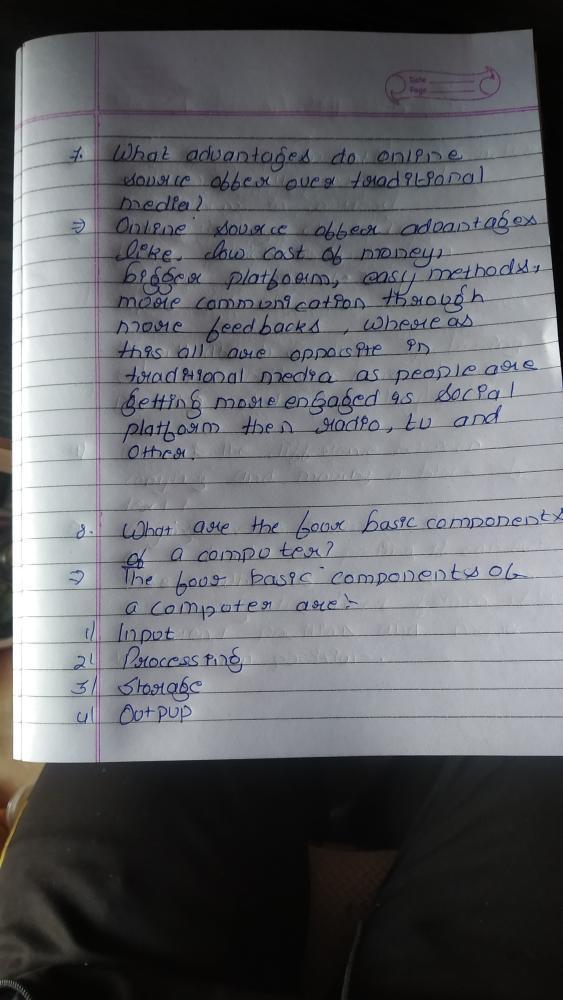 Date
Page
7. What advantages do online
source offer over traditional
media?
⇒ Online source offer advantages
like, low cost of money,
bigger platform, easy methods,
more communication through
more feedbacks, whereas
this all are opposite in
traditional media as people are
getting more engaged is social
platform then radio, tv and
other.
8. What are the four basic components
of a computer?
⇒ The four basic components of
a computer are:-
1) Input
2) Processing
3) Storage
4) Outpup